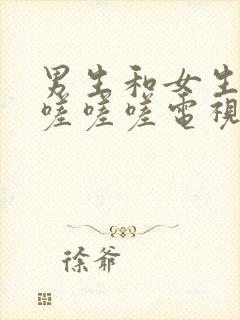 男生和女生
嗟嗟嗟電視
徐爺